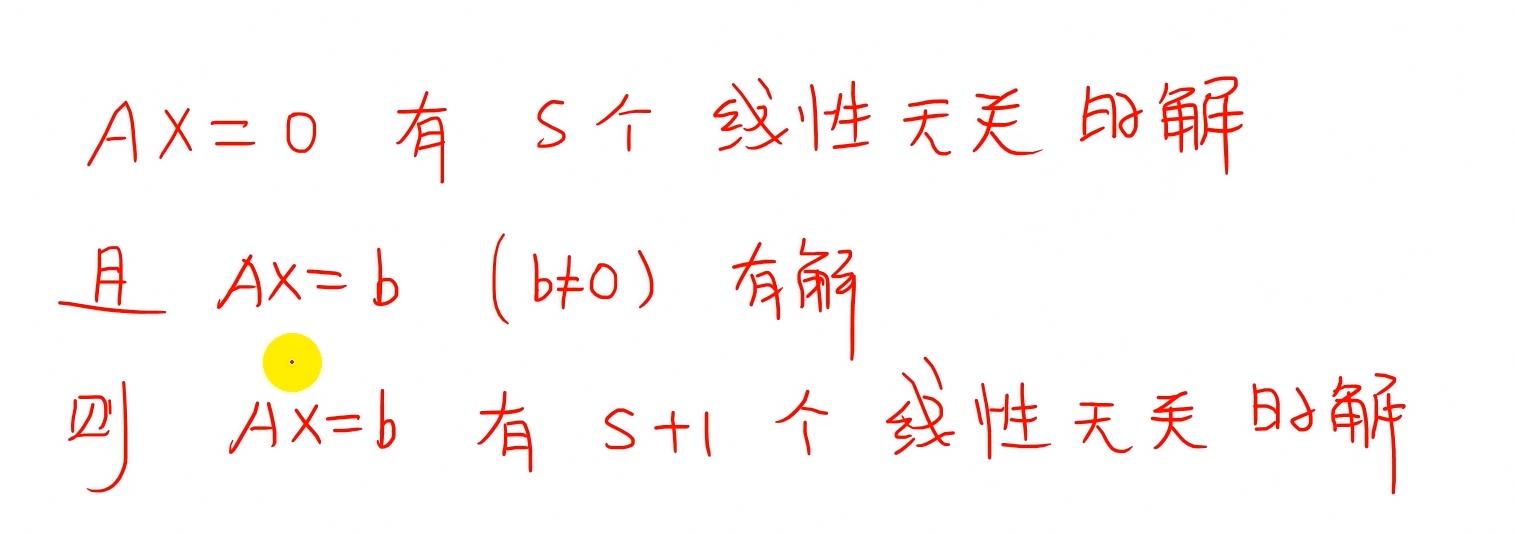 AX=0 有 S个 线性无关的解
且 AX=b (b≠0) 有解
则 AX=b 有 S+1 个 线性无关的解